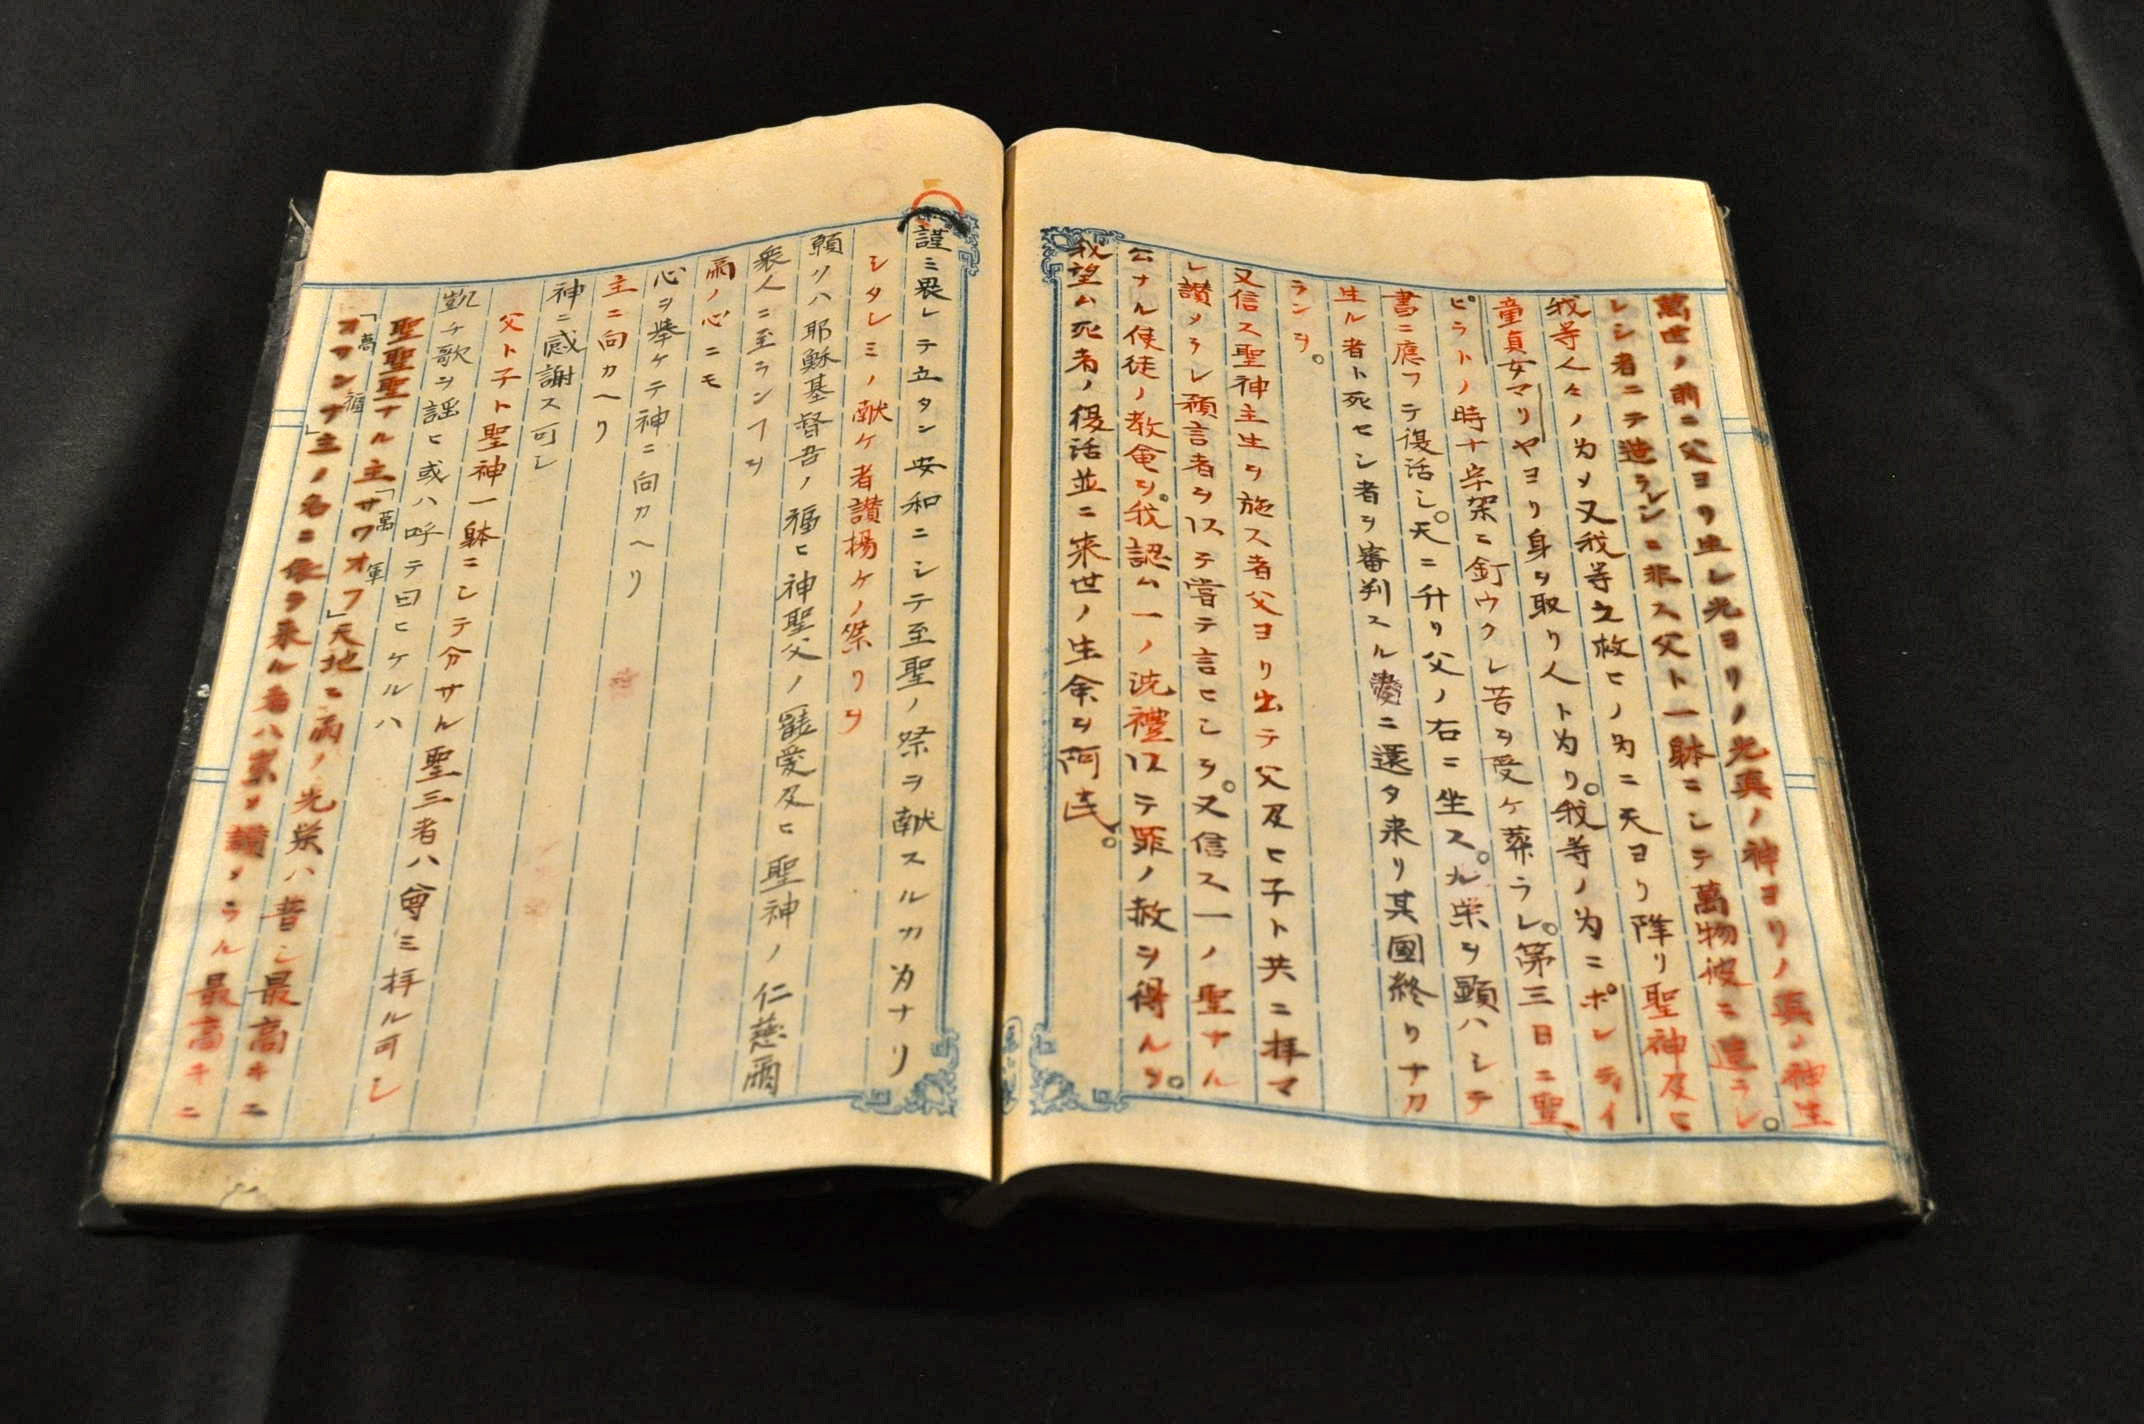 萬世ノ前ニ父ヨリ生レ光ヨリノ光真ノ神ヨリノ真ノ神生
レシ者ニテ造ラレシニ非ス父ト一躰ニシテ萬物彼ニ造ラレ。
我等人々ノ为メ又我等之救ヒノ为ニ天ヨリ降リ聖神及ヒ
童貞女マリヤヨリ身ヲ取リ人ト为リ。我等ノ为ニポンティイ
ピラトノ時十字架ニ釘ウクレ苦ヲ受ケ葬ラレ。第三日ニ聖
書ニ應フテ復活シ。天ニ升リ父ノ右ニ坐ス。光栄ヲ顕ハシテ
生ル者ト死セシ者ヲ審判スルニ還タ来リ其國終リナカ
ランヲ。
又信ス聖神主生ヲ施ス者父ヨリ出テ父及ヒ子ト共ニ拝マ
レ讃メラレ預言者ヲ以テ嘗テ言ヒシヲ。又信ス一ノ聖ナル
公ナル使徒ノ教會ヲ。我認ム一ノ洗禮以テ罪ノ赦ヲ得ルヲ。
我望ム死者ノ復活並ニ来世ノ生余ヲ阿民。
謹ミ畏レテ立タン安和ニシテ至聖ノ祭ヲ献スルカ为ナリ
シタレミノ献ケ者讃揚ケノ祭リヲ
願リハ耶穌基督吾ノ福ヒ神聖父ノ寵愛及ヒ聖神ノ仁慈爾
衆人ニ至ランヿヲ
爾ノ心ニモ
心ヲ挙ケテ神ニ向カヘリ
主ニ向カヘリ
神ニ感謝ス可シ
父ト子ト聖神一躰ニシテ分サル聖三者ハ尊ミ拝ル可シ
凱チ歌ヲ謡ヒ或ハ呼テ曰ヒケルハ
聖聖聖ナル主「サワオフ」天地ニ爾ノ光栄ハ昔シ最高キニ
萬軍
「オサンナ」主ノ名ニ依ラ来ル者ハ崇メ讃メラル最高キニ
高福